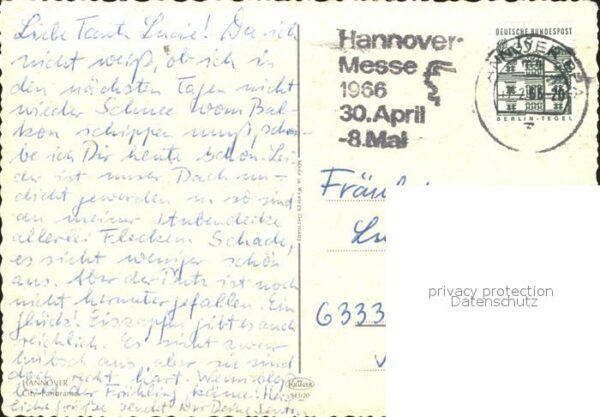 Liebe Tante Lucie! Da ich
nicht weiß, ob ich in
den nächsten Tagen nicht
wieder Schnee vom Bal-
kon schippen muß, schrei-
be ich Dir heute schon. Lei-
der ist unser Dach un-
dicht geworden u. so sind
an meiner Stubendecke
allerlei Flecken. Schade,
es sieht weniger schön
aus. Aber der Putz ist noch
nicht heruntergefallen. Ein
Glück! Eiszapfen gibt es auch
reichlich. Es sieht zwar
hübsch aus, aber sie sind
doch recht hart. Wenn bloß
bald der Frühling käme! Herz-
liche Grüße sendet Dir Deine
HANNOVER
City-Panorama
Made in Western Germany
Krüger
943/20
Hannover-
Messe
1966
30. April
-8. Mai
DEUTSCHE BUNDESPOST
HANNOVER
66-20
BERLIN-TEGEL
Fräulein
6333
privacy protection
Datenschutz